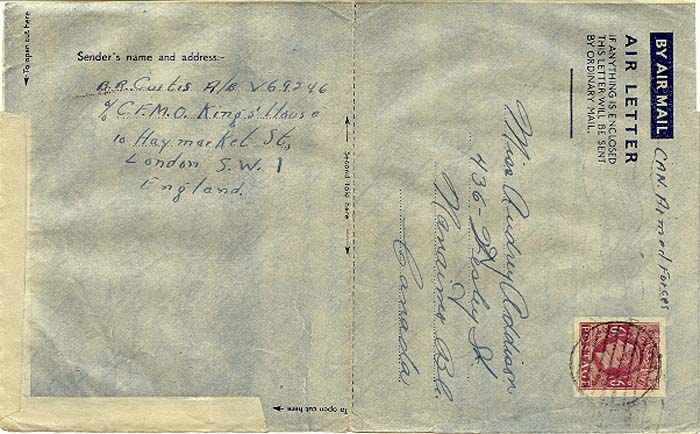 To open cut here
Sender's name and address:-
A.R. Curtis A/B V69246
c/o C.F.M.O. Kings' House
10 Haymarket St,
London S.W. 1
England.
Second fold here
To open cut here
BY AIR MAIL
AIR LETTER
IF ANYTHING IS ENCLOSED
THIS LETTER WILL BE SENT
BY ORDINARY MAIL.
CAN. Armed Forces
Miss Audrey Addison
436 - Wesley St.
Nanaimo B.C.
Canada.
6D 6D
POSTAGE